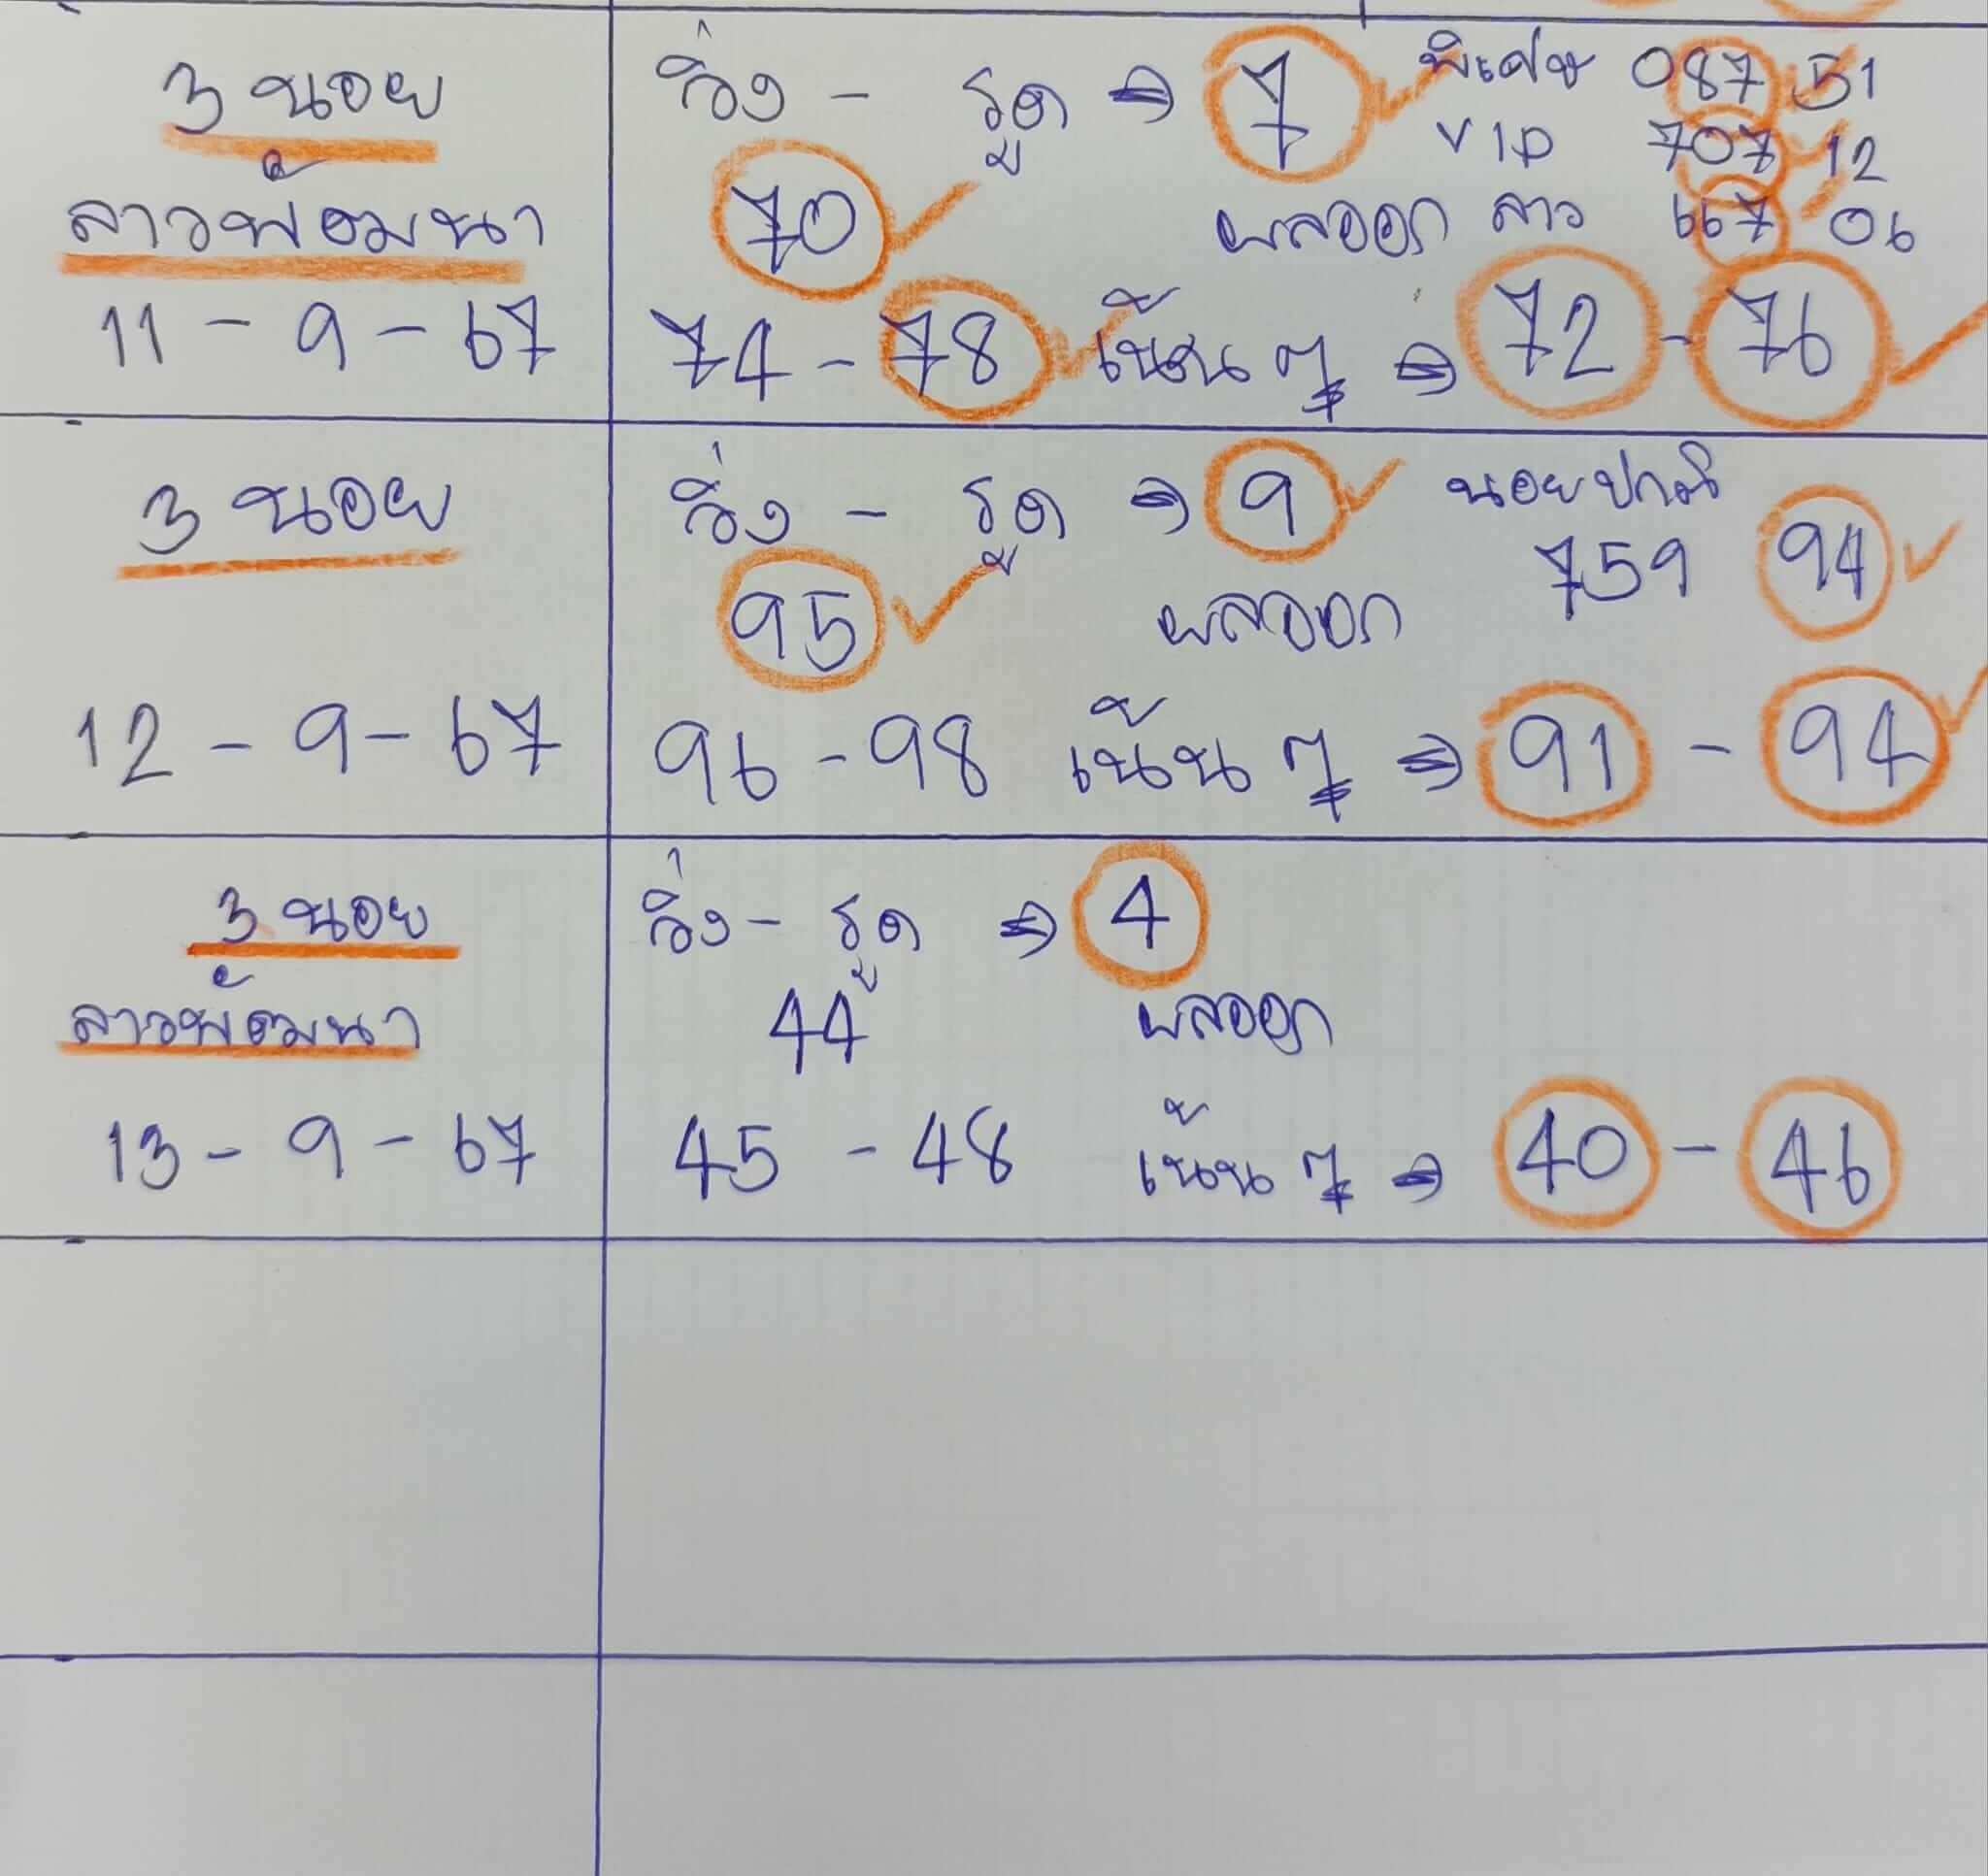 3 นอย
ลาวพัฒนา
11 - 9 - 67
วิ่ง - รูด ⇒ 7 พิเศษ 087 51
VIP 707 12
70 ผลออก ลาว 667 06
74 - 78 เน้น ๆ ⇒ 72 - 76
3 นอย
12 - 9 - 67
วิ่ง - รูด ⇒ 9 นอยปกติ
95 ผลออก 759 94
96 - 98 เน้น ๆ ⇒ 91 - 94
3 นอย
ลาวพัฒนา
13 - 9 - 67
วิ่ง - รูด ⇒ 4
44 ผลออก
45 - 48 เน้น ๆ ⇒ 40 - 46